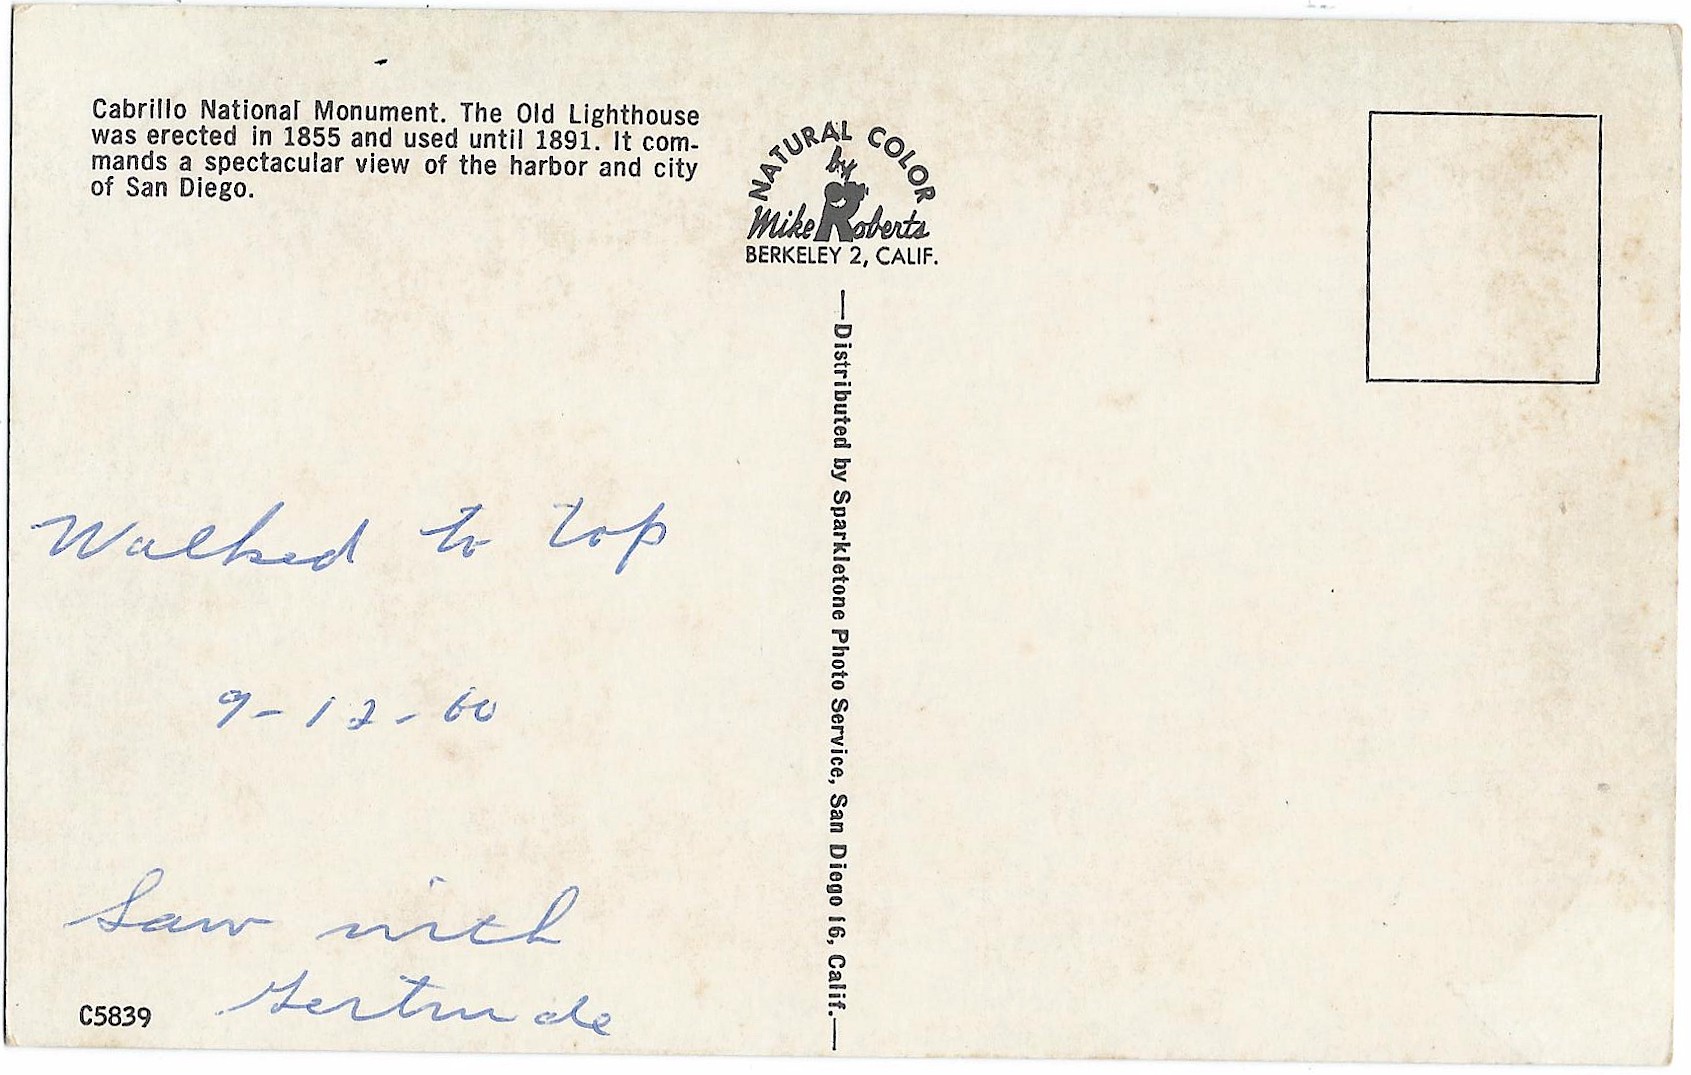 Cabrillo National Monument. The Old Lighthouse
was erected in 1855 and used until 1891. It com-
mands a spectacular view of the harbor and city
of San Diego.
NATURAL COLOR
by
Mike Roberts
BERKELEY 2, CALIF.
—Distributed by Sparkletone Photo Service, San Diego 16, Calif.—
Walked to top
9-12-60
Saw with
Gertrude
C5839